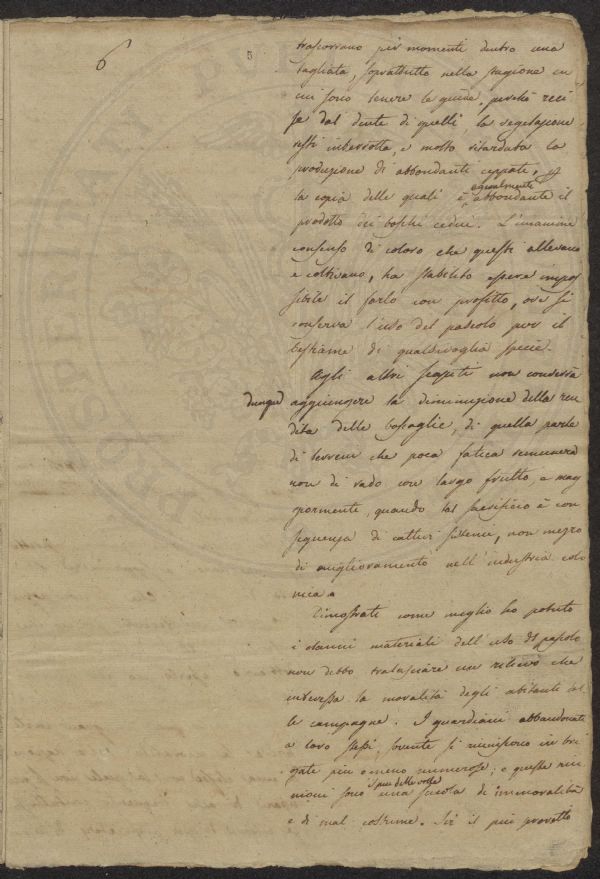 6
5
trascorrano pir momenti dentro una
tagliata, soprattutto nella stagione in
cui sono tenere le guide, perchè reci
se dal dente di quelli, la vegetazione
resti interrotta, e molto ritardata la
produzione di abbondanti ceppate,
la copia delle quali è egualmente abbondante il
prodotto dei boschi cedui. L'unanime
consenso di coloro che questi allevano
e coltivano, ha stabilito essere impos
sibile il farlo con profitto, ove si
conserva l'uso del pascolo per il
bestiame di qualsivoglia specie.
Agli altri scapiti non converrà
dunque aggiungere la diminuzione della ren
dita delle boscaglie, di quella parte
di terreni che poca fatica remunera
non di rado con largo frutto, e mag
giormente, quando tal sacrificio è con
seguenza di cattivi sistemi, non mezzo
di miglioramento nell'industria colo
nica.
Dimostrati come meglio ho potuto
i danni materiali dell'uso di pascolo
non debbo tralasciare un rilievo che
interessa la moralità degli abitanti del
le campagne. I guardiani abbandonati
a loro stessi, sovente si riuniscono in bri
gate più o meno numerose; e queste riu
nioni sono il più delle volte una scuola di immoralità
e di mal costume. Ivi il più provetto